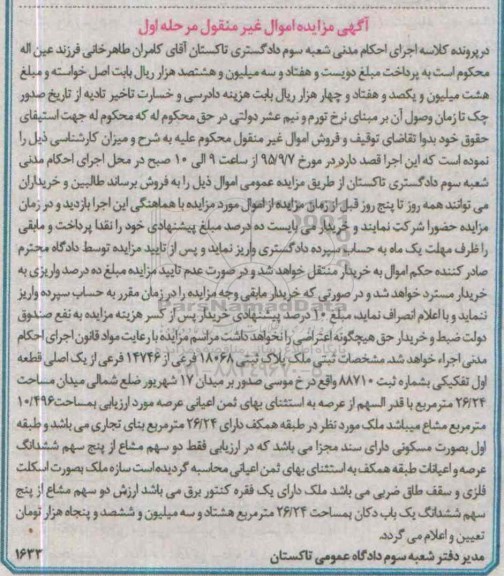 آگهی مزایده اموال غیر منقول مرحله اول
در پرونده کلاسه اجرای احکام مدنی شعبه سوم دادگستری تاکستان آقای کامران طاهرخانی فرزند عین اله
محکوم است به پرداخت مبلغ دویست و هفتاد و سه میلیون و هشتصد هزار ریال بابت اصل خواسته و مبلغ
هشت میلیون و یکصد و هفتاد و چهار هزار ریال بابت هزینه دادرسی و خسارت تاخیر تادیه از تاریخ صدور
چک تا زمان وصول آن بر مبنای نرخ تورم و نیم عشر دولتی در حق محکوم له که محکوم له جهت استیفای
حقوق خود بدوا تقاضای توقیف و فروش اموال غیر منقول محکوم علیه به شرح و میزان کارشناسی ذیل را
نموده است که این اجرا قصد دارد در مورخ ۹۵/۹/۷ از ساعت ۹ الی ۱۰ صبح در محل اجرای احکام مدنی
شعبه سوم دادگستری تاکستان از طریق مزایده عمومی اموال ذیل را به فروش برساند طالبین و خریداران
می توانند همه روز تا پنج روز قبل از زمان مزایده از اموال مورد مزایده با هماهنگی این اجرا بازدید و در زمان
مزایده حضورا شرکت نمایند و خریدار می بایست ده درصد مبلغ پیشنهادی خود را نقدا پرداخت و مابقی
را ظرف مهلت یک ماه به حساب سپرده دادگستری واریز نماید و پس از تایید مزایده توسط دادگاه محترم
صادر کننده حکم اموال به خریدار منتقل خواهد شد و در صورت عدم تایید مزایده مبلغ ده درصد واریزی به
خریدار مسترد خواهد شد و در صورتی که خریدار مابقی وجه مزایده را در زمان مقرر به حساب سپرده واریز
ننماید و با اعلام انصراف نماید، مبلغ ۱۰ درصد پیشنهادی خریدار پس از کسر هزینه مزایده به نفع صندوق
دولت ضبط و خریدار حق هیچگونه اعتراضی را نخواهد داشت مراسم مزایده با رعایت مواد قانون اجرای احکام
مدنی اجراء خواهد شد. مشخصات ثبتی ملک پلاک ثبتی ۱۸۰۶۸ فرعی از ۱۴۷۴۶ فرعی از یک اصلی قطعه
اول تفکیکی بشماره ثبت ۸۸۷۱۰ واقع در خ موسی صدور بر میدان ۱۷ شهریور ضلع شمالی میدان مساحت
۲۶/۲۴ مترمربع با قدر السهم از عرصه به استثنای بهای ثمن اعیانی عرصه مورد ارزیابی بمساحت ۱۰/۴۹۶
مترمربع مشاع میباشد ملک مورد نظر در طبقه همکف دارای ۲۶/۲۴ مترمربع بنای تجاری می باشد و طبقه
اول بصورت مسکونی دارای سند مجزا می باشد که در ارزیابی فقط دو سهم مشاع از پنج سهم ششدانگ
عرصه و اعیانات طبقه همکف به استثنای بهای ثمن اعیانی محاسبه گردیده است سازه ملک بصورت اسکلت
فلزی و سقف طاق ضربی می باشد ملک دارای یک فقره کنتور برق می باشد ارزش دو سهم مشاع از پنج
سهم ششدانگ یک باب دکان بمساحت ۲۶/۲۴ مترمربع هشتاد و سه میلیون و ششصد و پنجاه هزار تومان
تعیین و اعلام می گردد.
مدیر دفتر شعبه سوم دادگاه عمومی تاکستان
۱۶۳۳